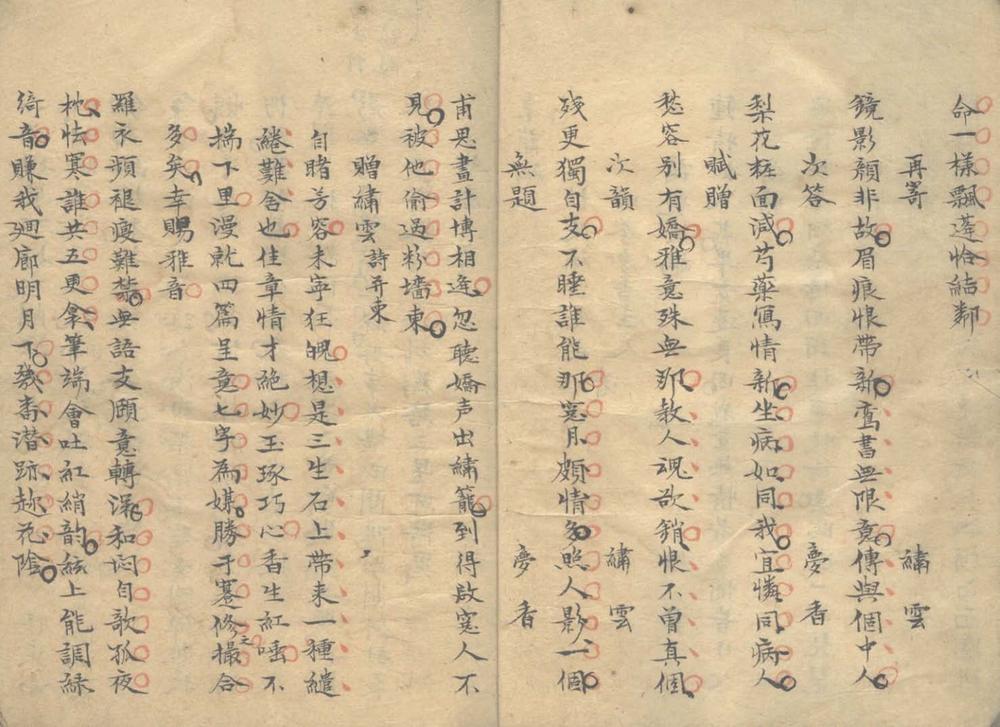 命一樣飄蓬恰結鄰
再寄　繡雲
鏡影顏非故眉痕恨帶新鸞書無限意傳與個中人
次答　夢香
梨花粧面減芍藥寫情新坐病如同我宜憐同病人
賦贈
愁容別有嬌雅意殊無那教人魂欲銷恨不曾真個
次韻　繡雲
殘更獨自支不睡誰能那窓月頗情多照人影一個
無題　夢香
甫思畫計博相逢忽聽嬌声出繡籠到得啟窓人不
見被他偷過粉墻東
贈繡雲 詩并柬
自睹芳容未寧狂魄想是三生石上帶來一種繾
綣難舍也佳章情才絕妙玉琢巧心香生紅唾不
揣下里漫就四篇呈意七字為媒勝于蹇修撮合
之
多矣幸賜雅音
羅衣頻褪瘦難禁無語支頤意轉深和悶自歌孤夜
枕怯寒誰共五更衾筆端會吐紅綃韵絃上能調綠
綺音賺我迴廊明月下幾番潛跡趂花陰